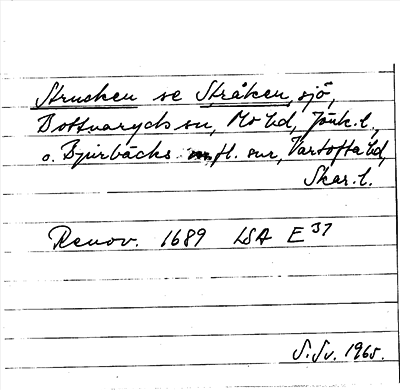 Strucken se Stråken, sjö,
Bottnaryds sn, Mo hd, Jönk. l.,
o. Bjurbäcks m. fl. snr, Vartofta hd,
Skar. l.
Renov. 1689 LSA E 37
S. Sv. 1965.